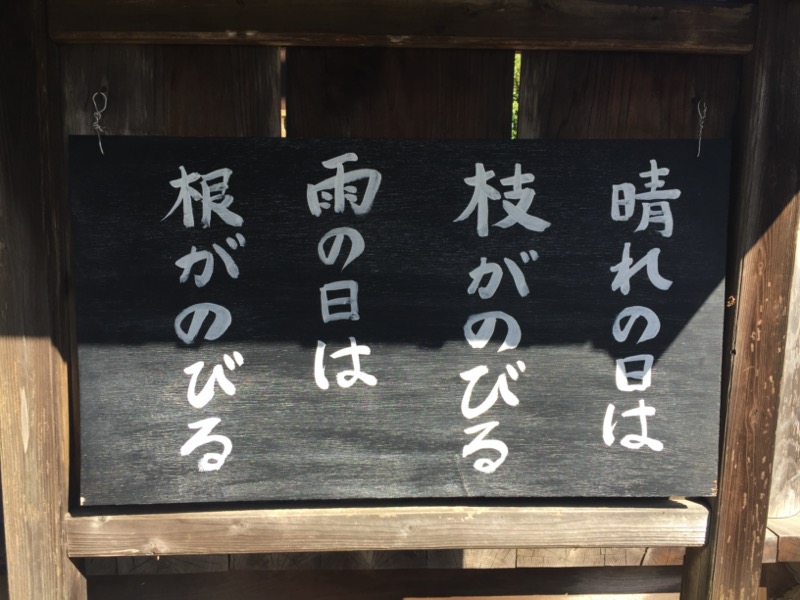 晴れの日は
枝がのびる
雨の日は
根がのびる